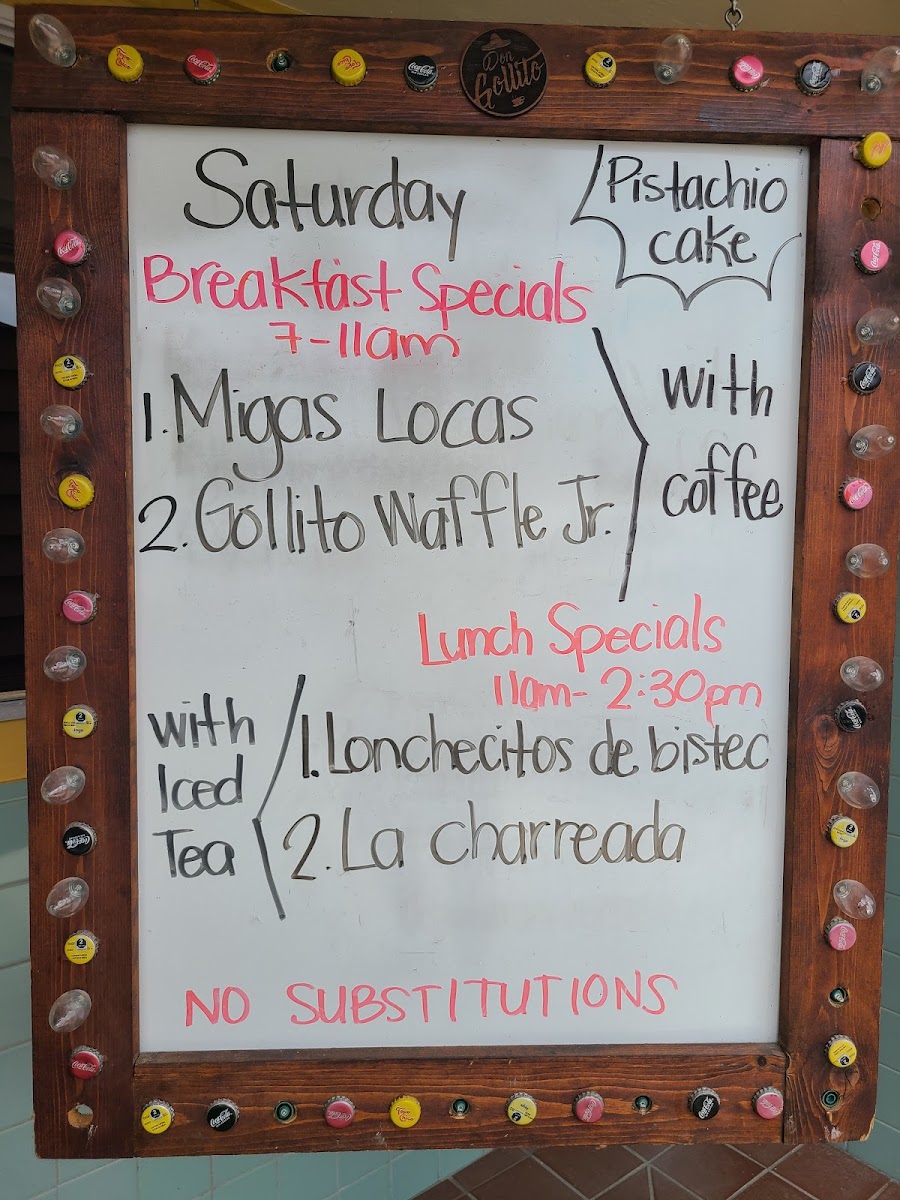 Don
Gollito
Saturday
Pistachio
cake
Breakfast Specials
7-11am
1. Migas Locas
2. Gollito Waffle Jr.
with
coffee
Lunch Specials
11am-2:30pm
with
Iced
Tea
1. Lonchecitos de bistec
2. La charreada
NO SUBSTITUTIONS
Coca-Cola